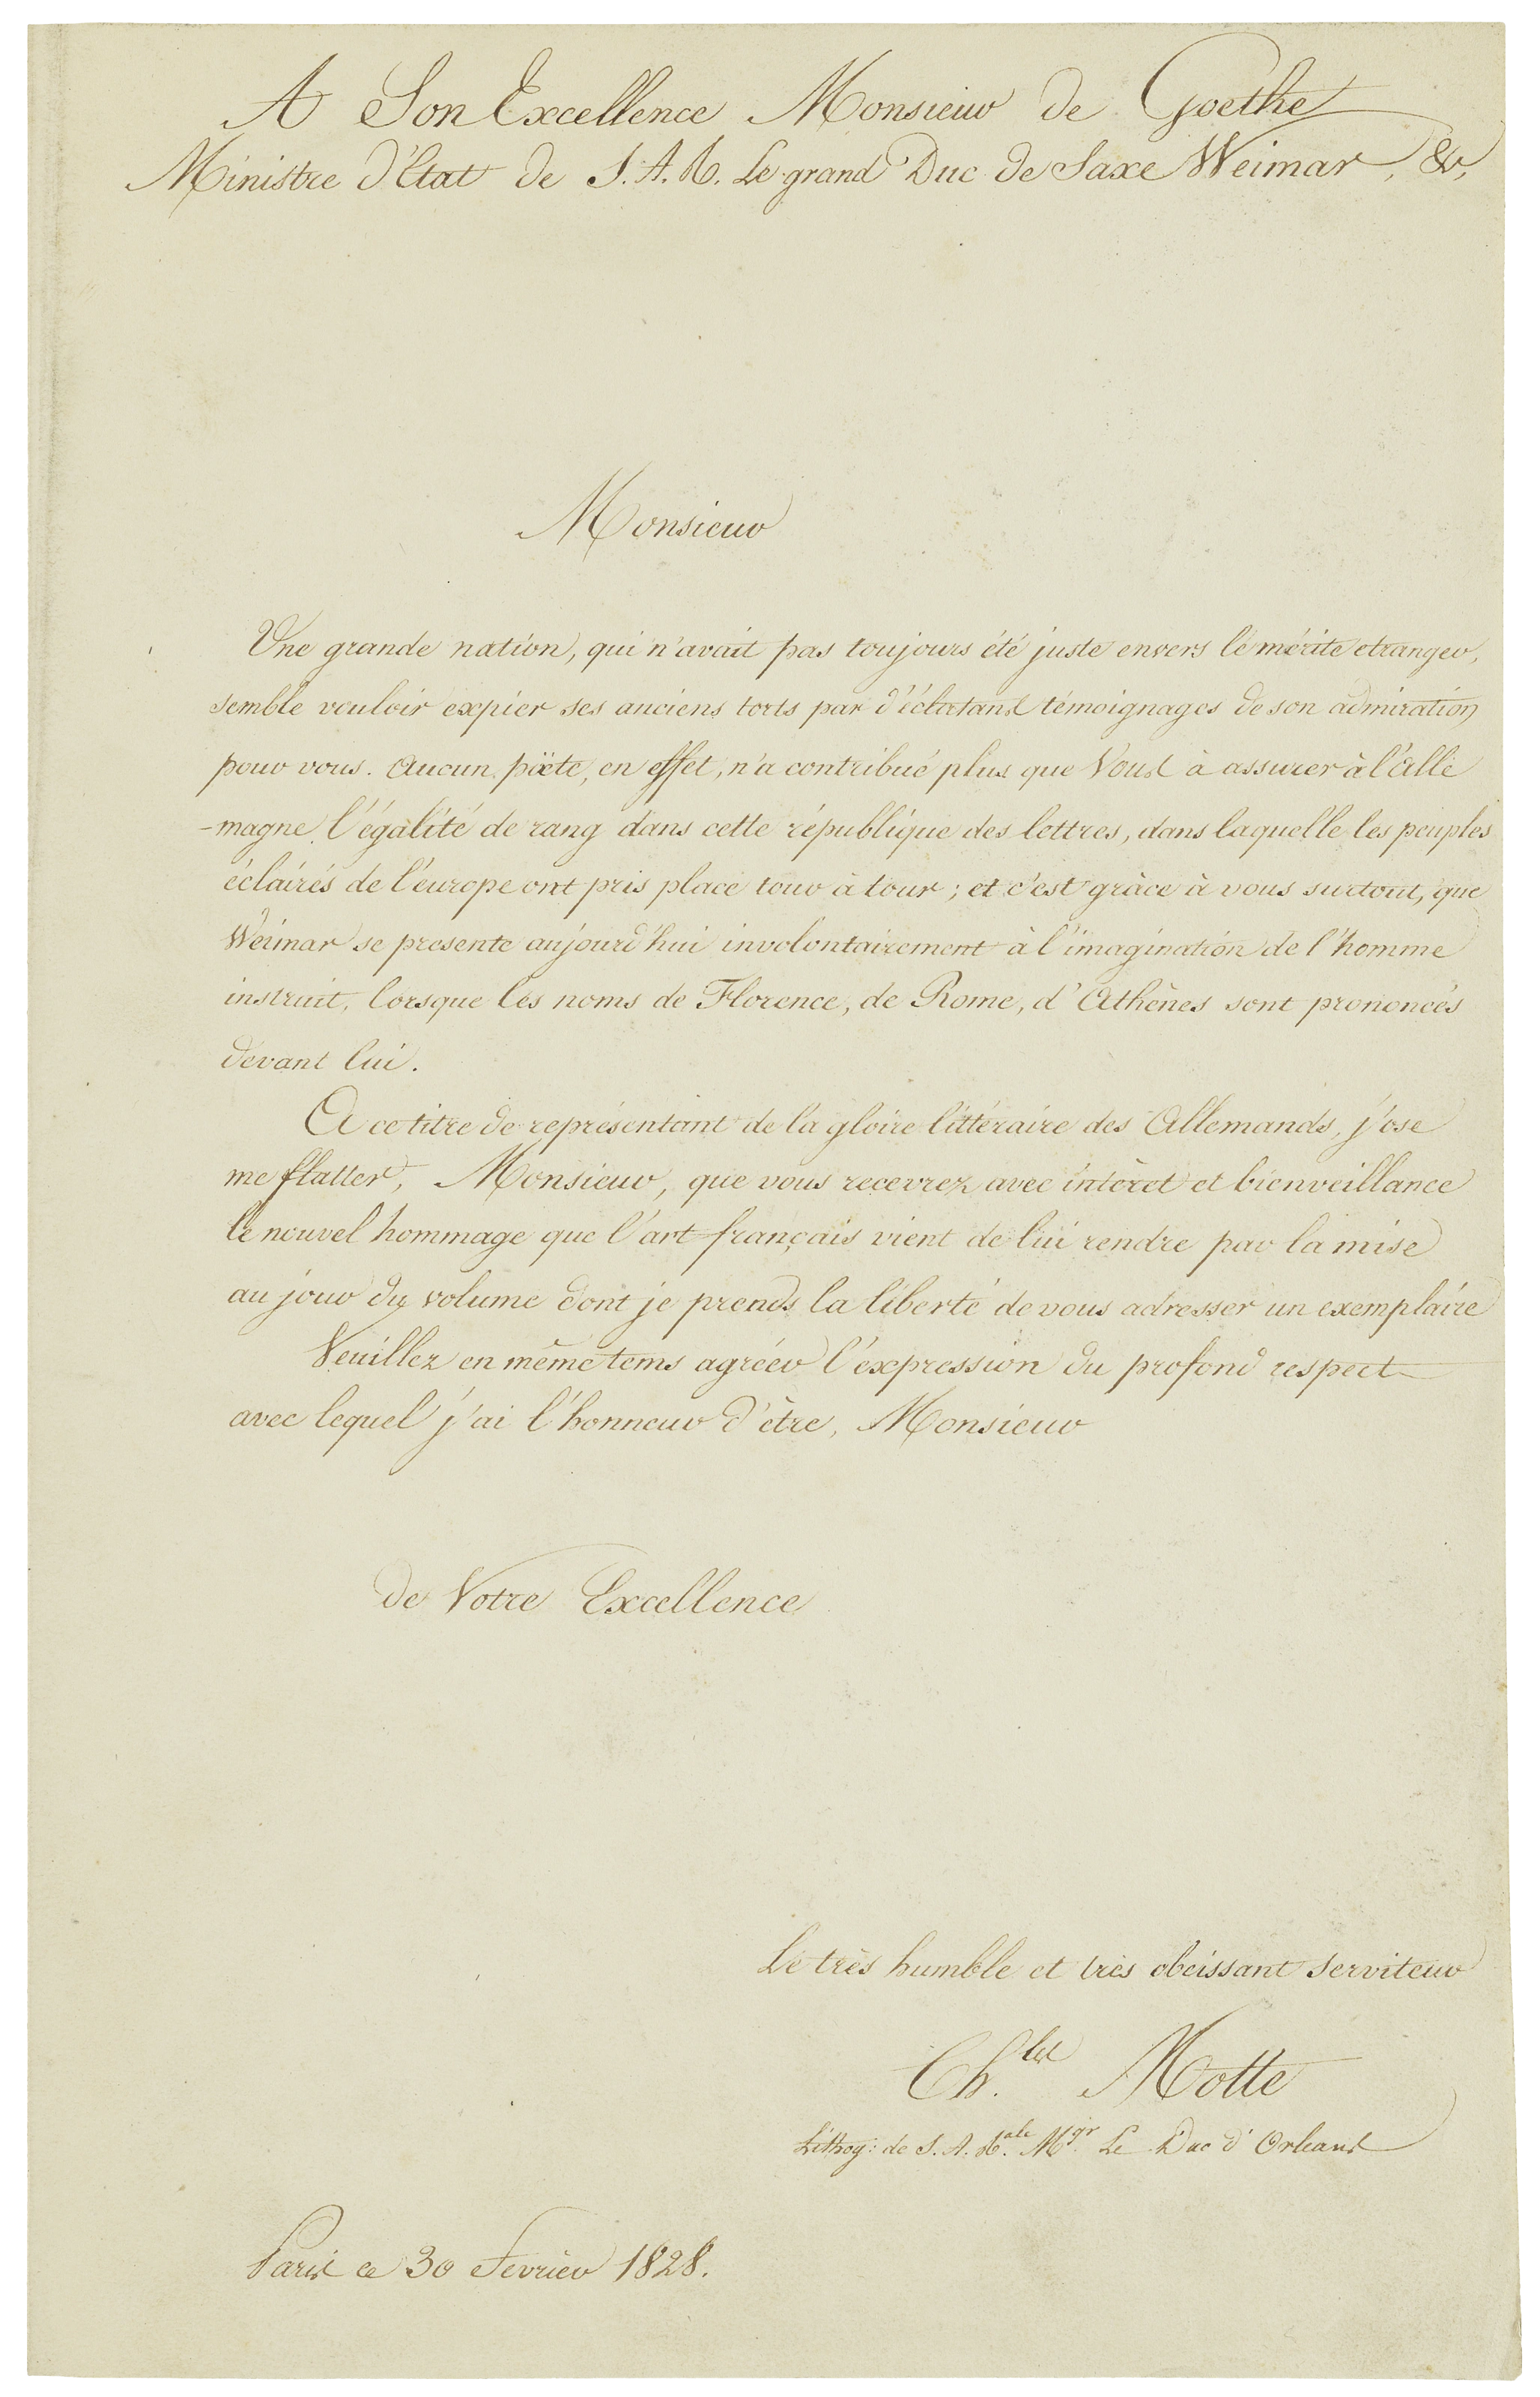 A Son Excellence Monsieur de Goethe
Ministre d'Etat de S. A. R. Le grand Duc de Saxe Weimar, &c,
Monsieur
Une grande nation, qui n'avait pas toujours été juste envers le mérite etranger,
semble vouloir expier ses anciens torts par d'éclatans témoignages de son admiration
pour vous. Aucun poëte, en effet, n'a contribué plus que Vous à assurer à l'Alle
-magne l'égalité de rang dans cette république des lettres, dans laquelle les peuples
éclairés de l'europe ont pris place tour à tour ; et c'est grâce à vous surtout, que
Weimar se presente aujourd'hui involontairement à l'imagination de l'homme
instruit, lorsque les noms de Florence, de Rome, d'Athènes sont prononcés
devant lui.
A ce titre de représentant de la gloire littéraire des Allemands, j'ose
me flatter, Monsieur, que vous recevrez avec intèret et bienveillance
le nouvel hommage que l'art français vient de lui rendre par la mise
au jour du volume dont je prends la liberté de vous adresser un exemplaire
Veuillez en même tems agréer l'éxpression du profond respect
avec lequel j'ai l'honneur d'être, Monsieur
de Votre Excellence
Le très humble et très obeissant serviteur
Ch.les Motte
Lithog: de S. A. R.ale Mgr. Le Duc d'Orleans
Paris ce 30 Fevrier 1828.